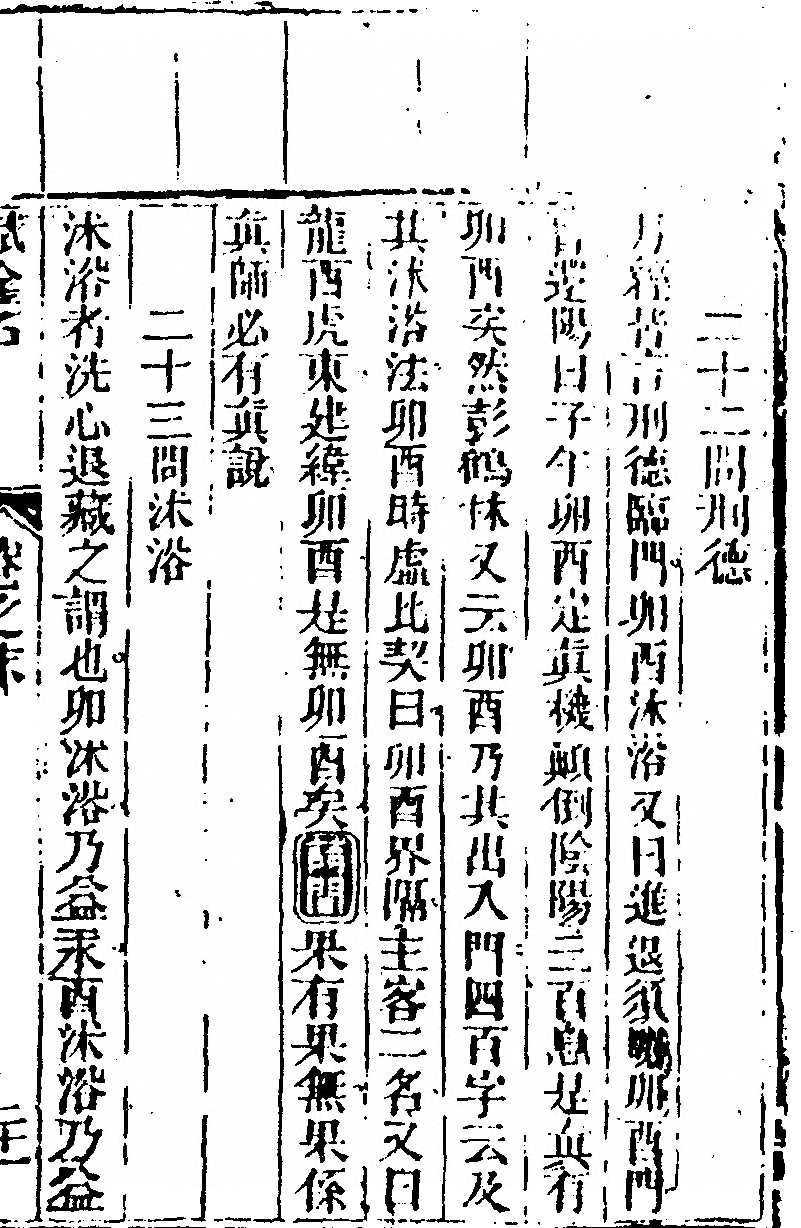 二十二問刑德
刀經皆言刑德臨門卯酉沐浴又曰進退須卯酉門
陽曰子午卯酉定真機顛倒陰陽三百息是真有
卯酉矣然彭鶴林又云卯酉乃其出入門四百字云及
其沐浴法卯酉時虛比契曰卯酉界隔主客二名又曰
龍西虎東建緯卯酉是無卯酉矣關門果有果無果係
真師必有真說
二十三問沐浴
沐浴者洗心退藏之謂也卯沐浴乃益汞酉沐浴乃益
試金石
卷之末
二十一